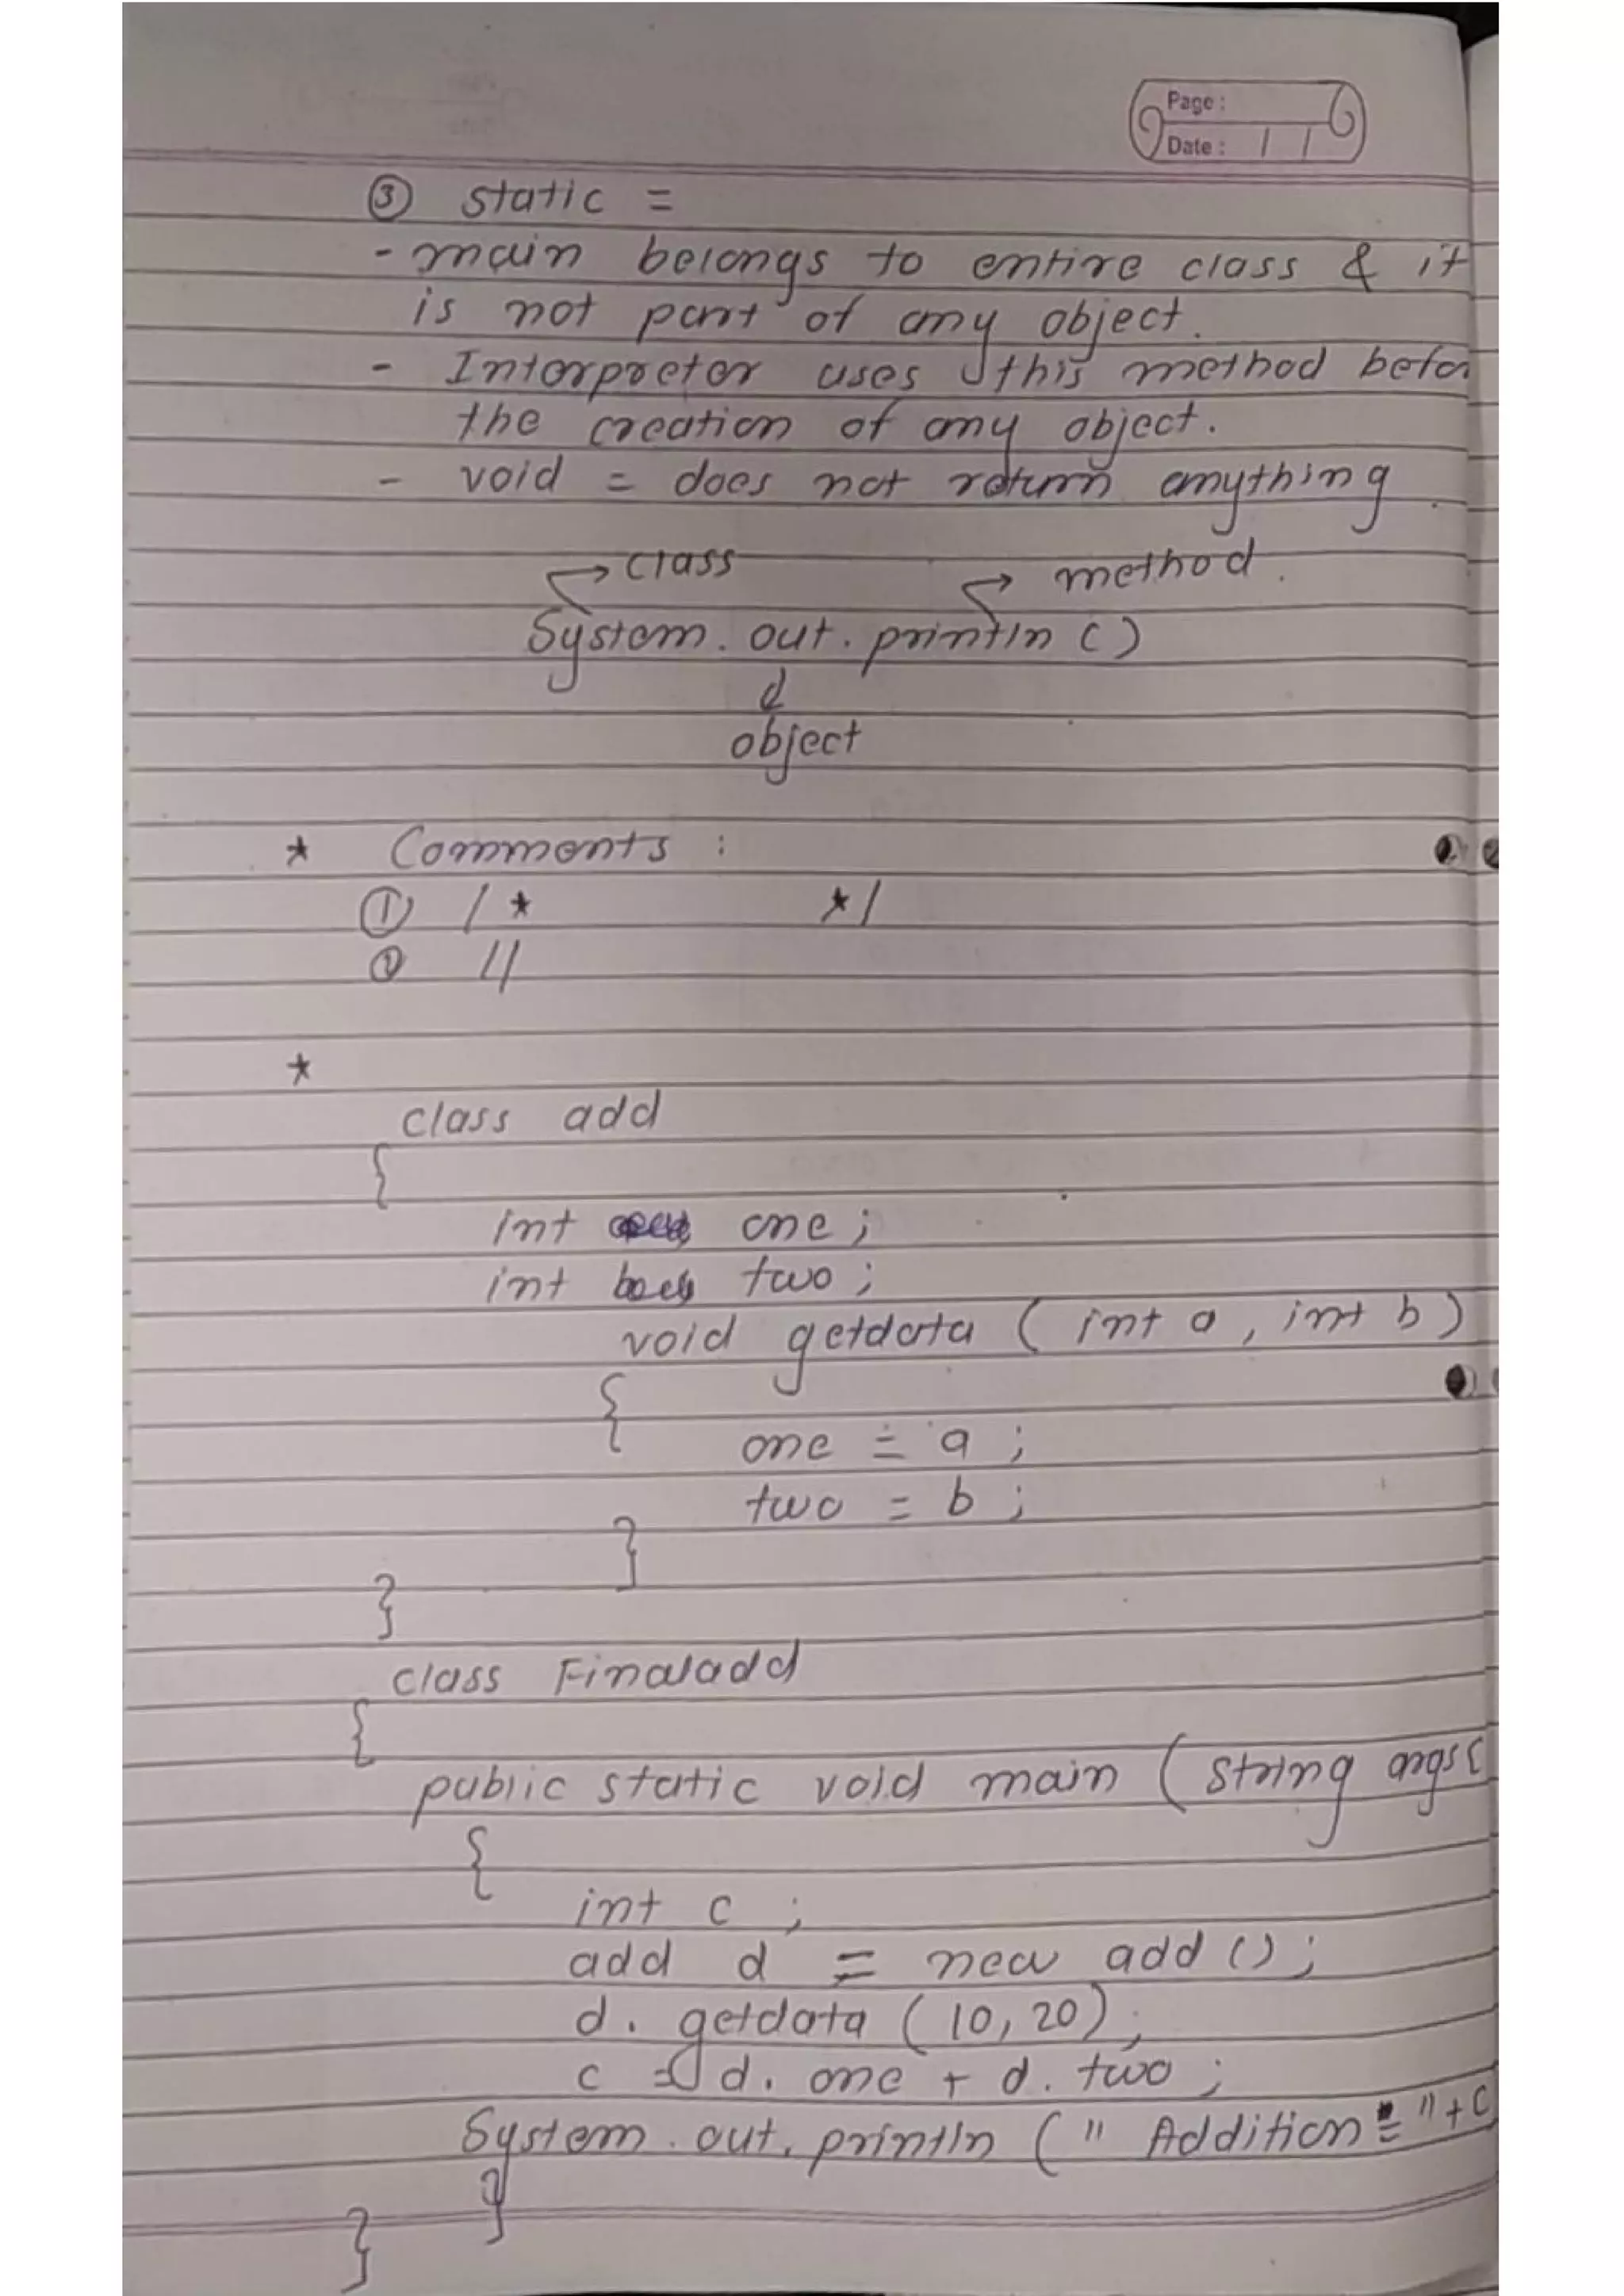 Page :
Date : / /
③ static =
- main belongs to entire class & it
is not part of any object.
- Interpreter uses this method befor
the creation of any object.
- void = does not return anything.
class method.
System. out. println ()
object
* Comments :
① /* */
② //
*
class add
{
int one ;
int two ;
void getdata ( int a , int b )
{
one = a ;
two = b ;
}
}
class Finaladd
{
public static void main ( String args[
{
int c ;
add d = new add () ;
d. getdata ( 10, 20) ;
c = d. one + d. two ;
System. out. println ( " Addition = " + c
}
}